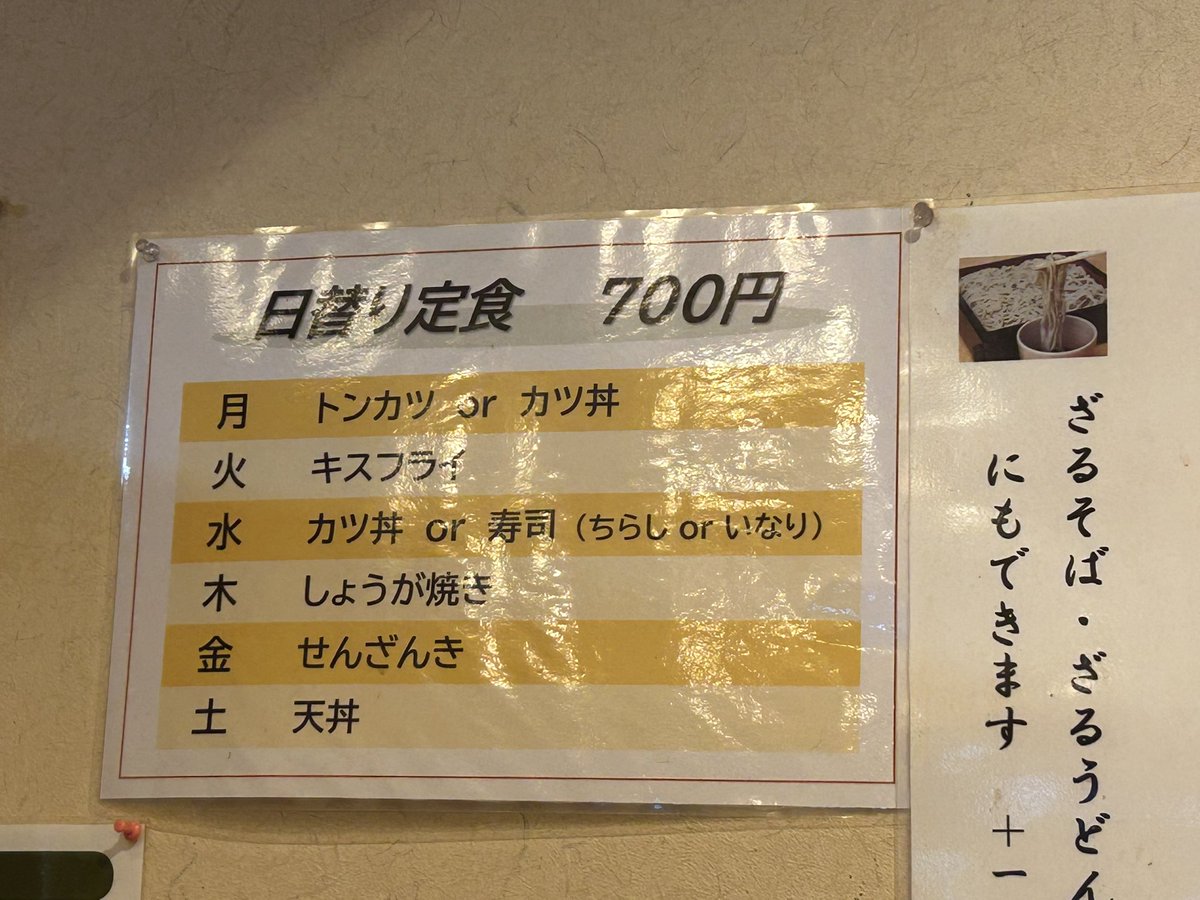 日替り定食　700円
月　トンカツ or カツ丼
火　キスフライ
水　カツ丼 or 寿司（ちらし or いなり）
木　しょうが焼き
金　せんざんき
土　天丼
ざるそば・ざるうどん
にもできます　＋